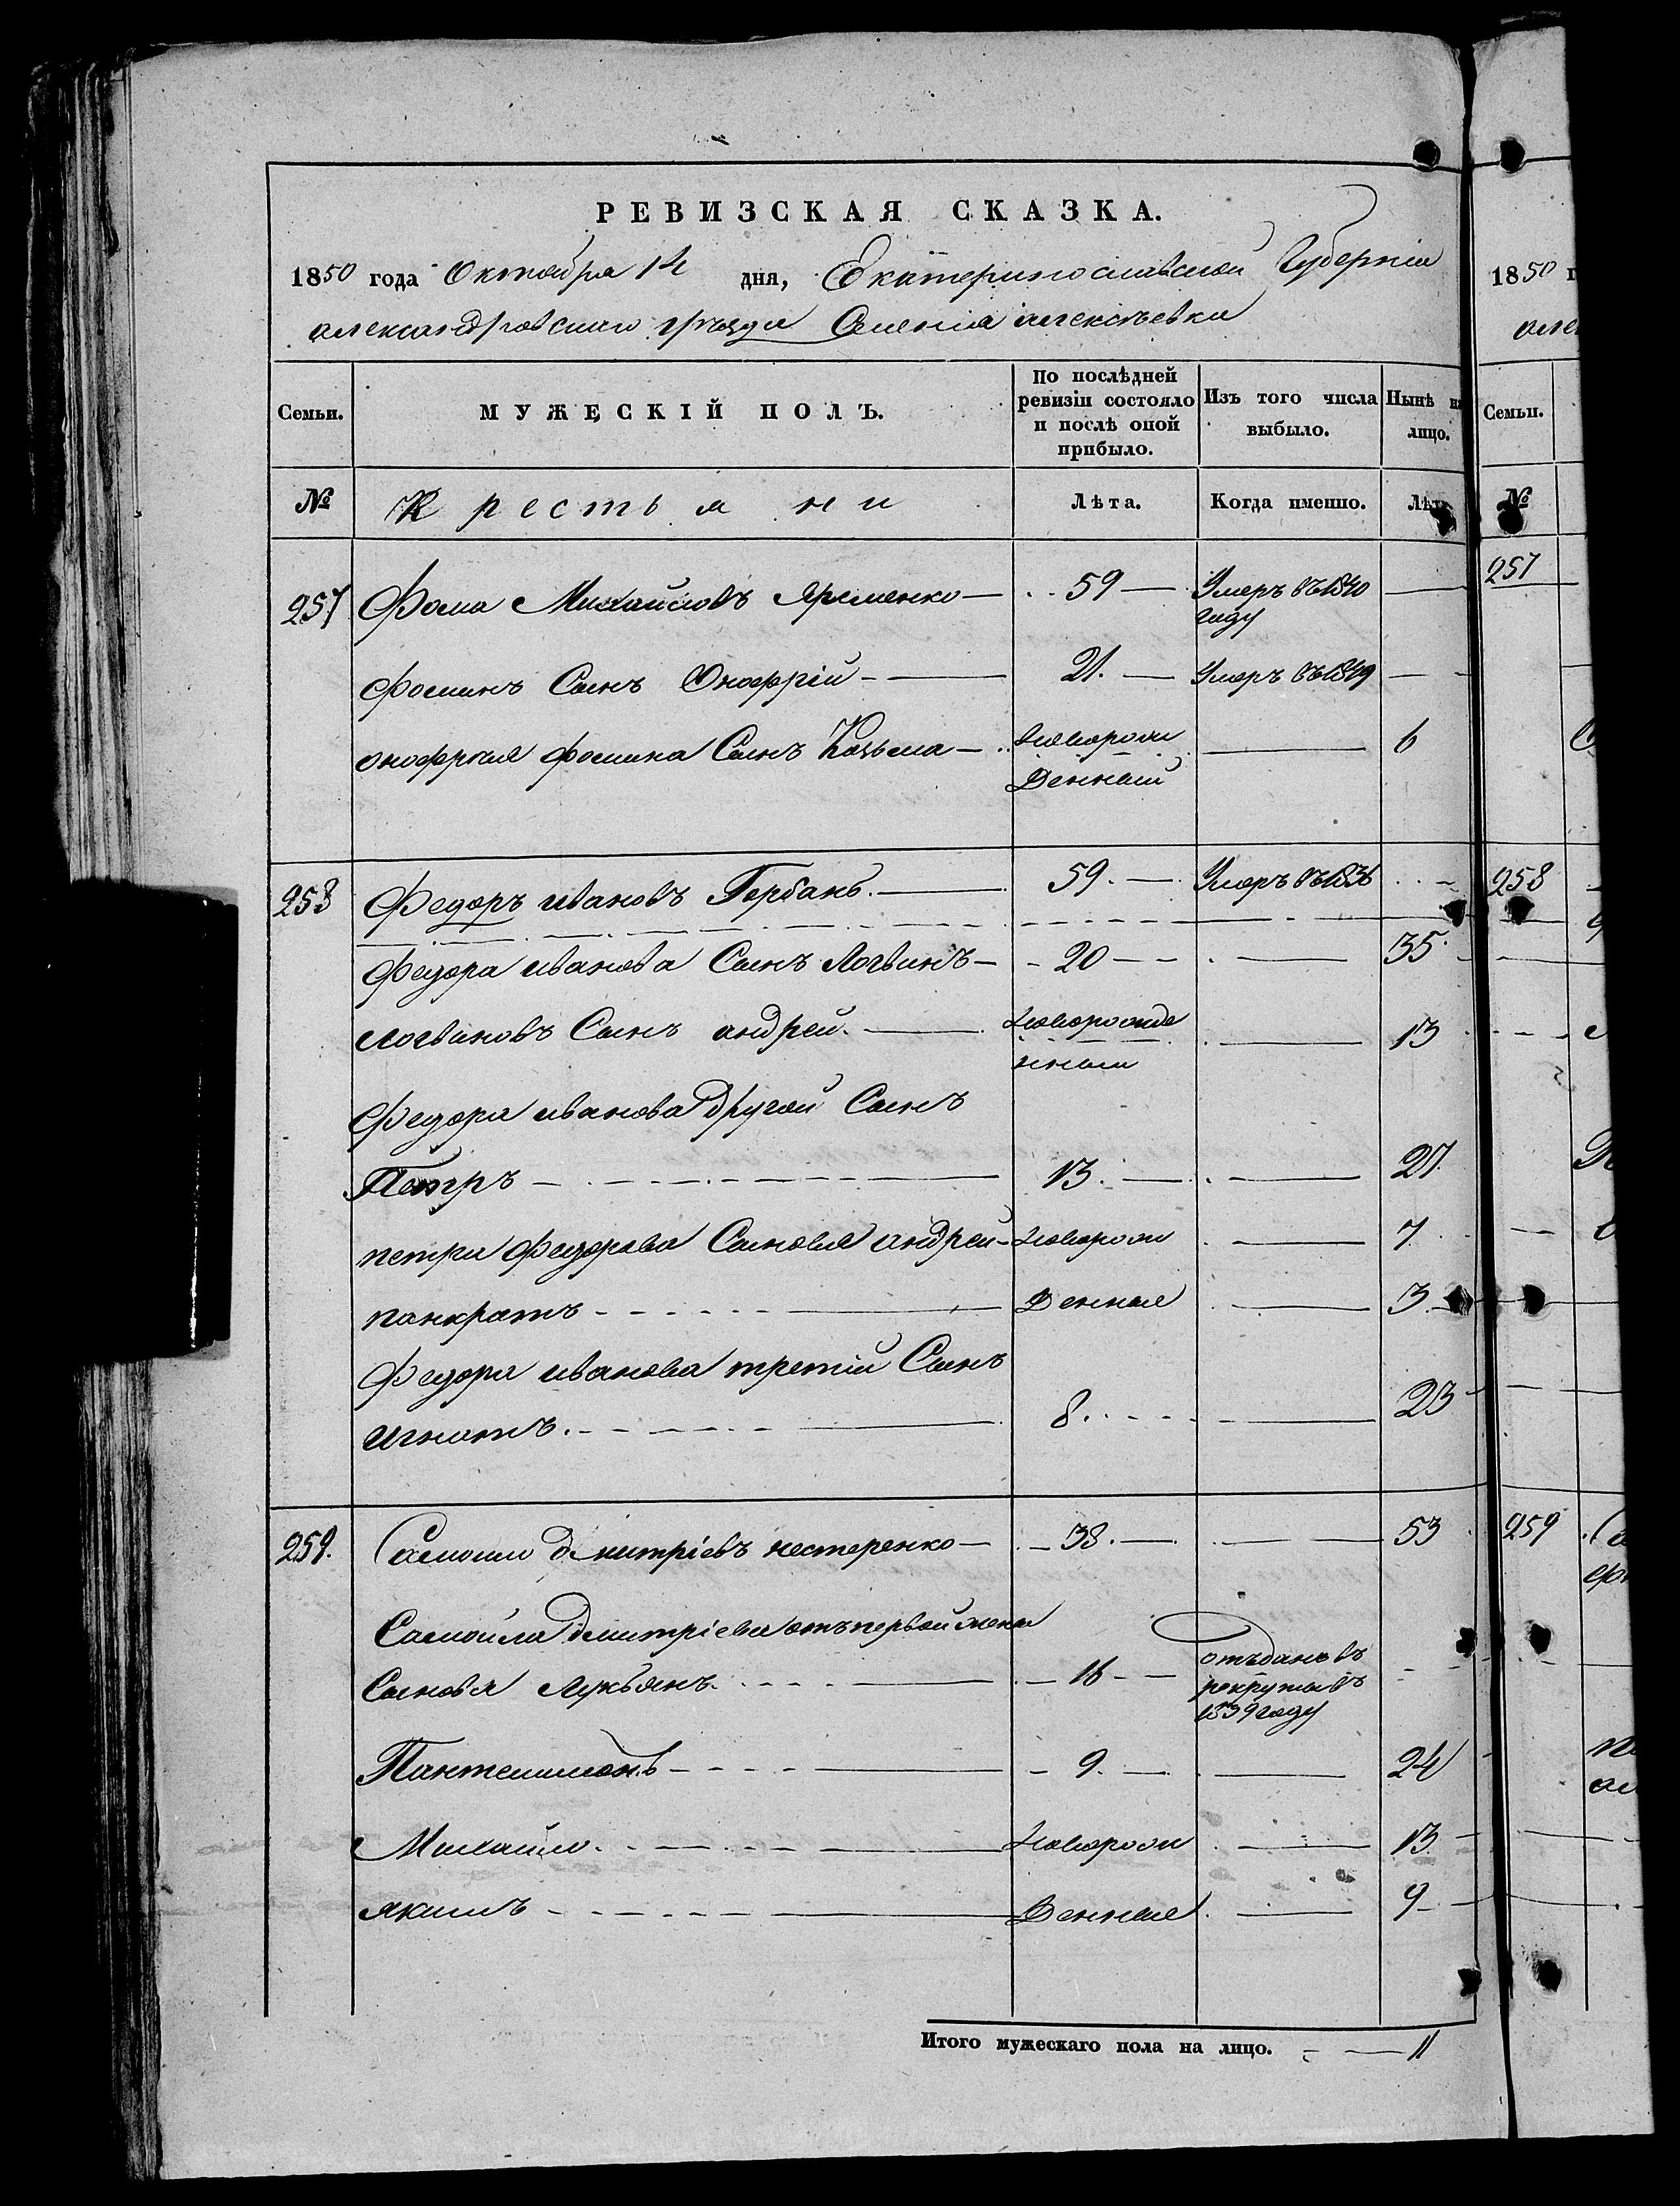 РЕВИЗСКАЯ СКАЗКА.
1850 года Октября 14 дня, Екатеринославской Губерніи
александровскаго уѣзда Селенія алексѣевки
Семьи. МУЖЕСКІЙ ПОЛЪ. По послѣдней ревизіи состояло и послѣ оной прибыло. Изъ того числа выбыло. Нынѣ на лицо.
№ Крестьяни Лѣта. Когда именно. Лѣта
257 Фома Михайловъ Яременко 59 Умеръ въ 1840 году
Фоминъ Сынъ Онофрій 21. Умеръ въ 1849
онофрия фомина Сынъ Козьма Новорож денный 6
258 Федоръ ивановъ Горбань. 59. Умеръ въ 1836
Федора иванова Сынъ Логвинъ 20 35
логвиновъ Сынъ андрей. Новорожде нный 13
Федора иванова другой Сынъ
Петръ 13. 27.
петра Федорова Сыновья андрей Новорож 7
панкратъ Денные 3
Федора иванова третій Сынъ
игнатъ. 8. 23
259. Самойло дмитріевъ нестеренко 38. 53
Самойла дмитріева отъ первой жены
Сыновья Лукьянъ. 16 отъданъ въ рекруты въ 1839 году
Пантелимонъ 9. 24
Михайло. Новорож 13
якимъ Денные 9
Итого мужескаго пола на лицо. 11
1850 г
але
Семьи.
№
257
258
259